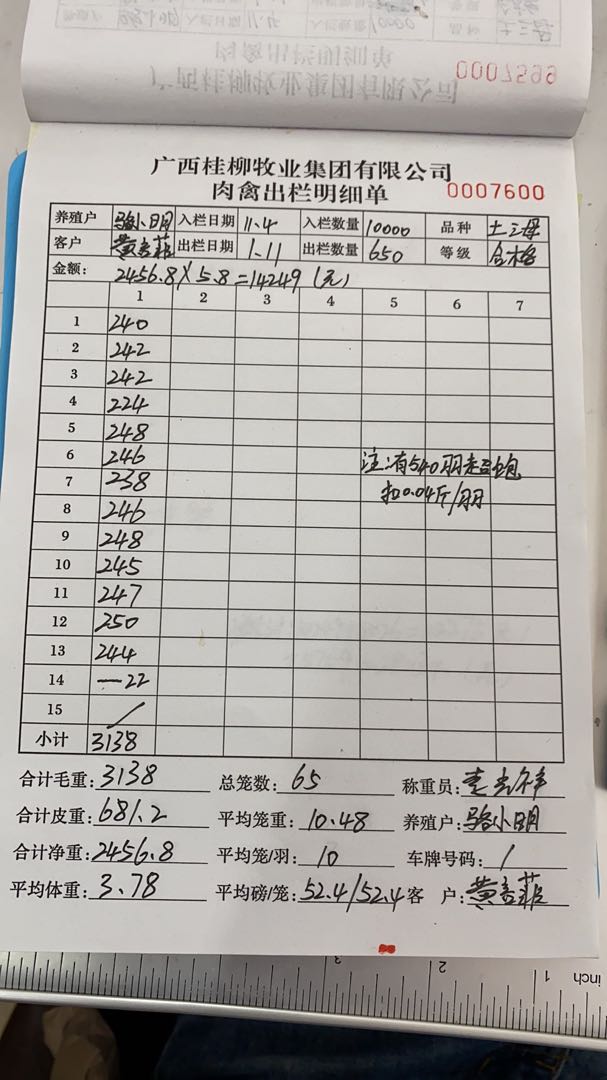 0007599
广西桂柳牧业集团有限公司
肉禽出栏明细单 0007600
养殖户 骆小明 入栏日期 11.4 入栏数量 10000 品种 土三母
客户 出栏日期 1.11 出栏数量 650 等级 合格
金额: 2456.8×5.8=14249(元)
1 2 3 4 5 6 7
1 240
2 242
3 242
4 224
5 248
6 246 注:有540羽超饱
7 238 扣0.04斤/羽
8 246
9 248
10 245
11 247
12 250
13 244
14 —22
15 /
小计 3138
合计毛重: 3138 总笼数: 65 称重员:
合计皮重: 681.2 平均笼重: 10.48 养殖户: 骆小明
合计净重: 2456.8 平均笼/羽: 10 车牌号码: /
平均体重: 3.78 平均磅/笼: 52.4/52.4 客 户:
3 2 1 inch